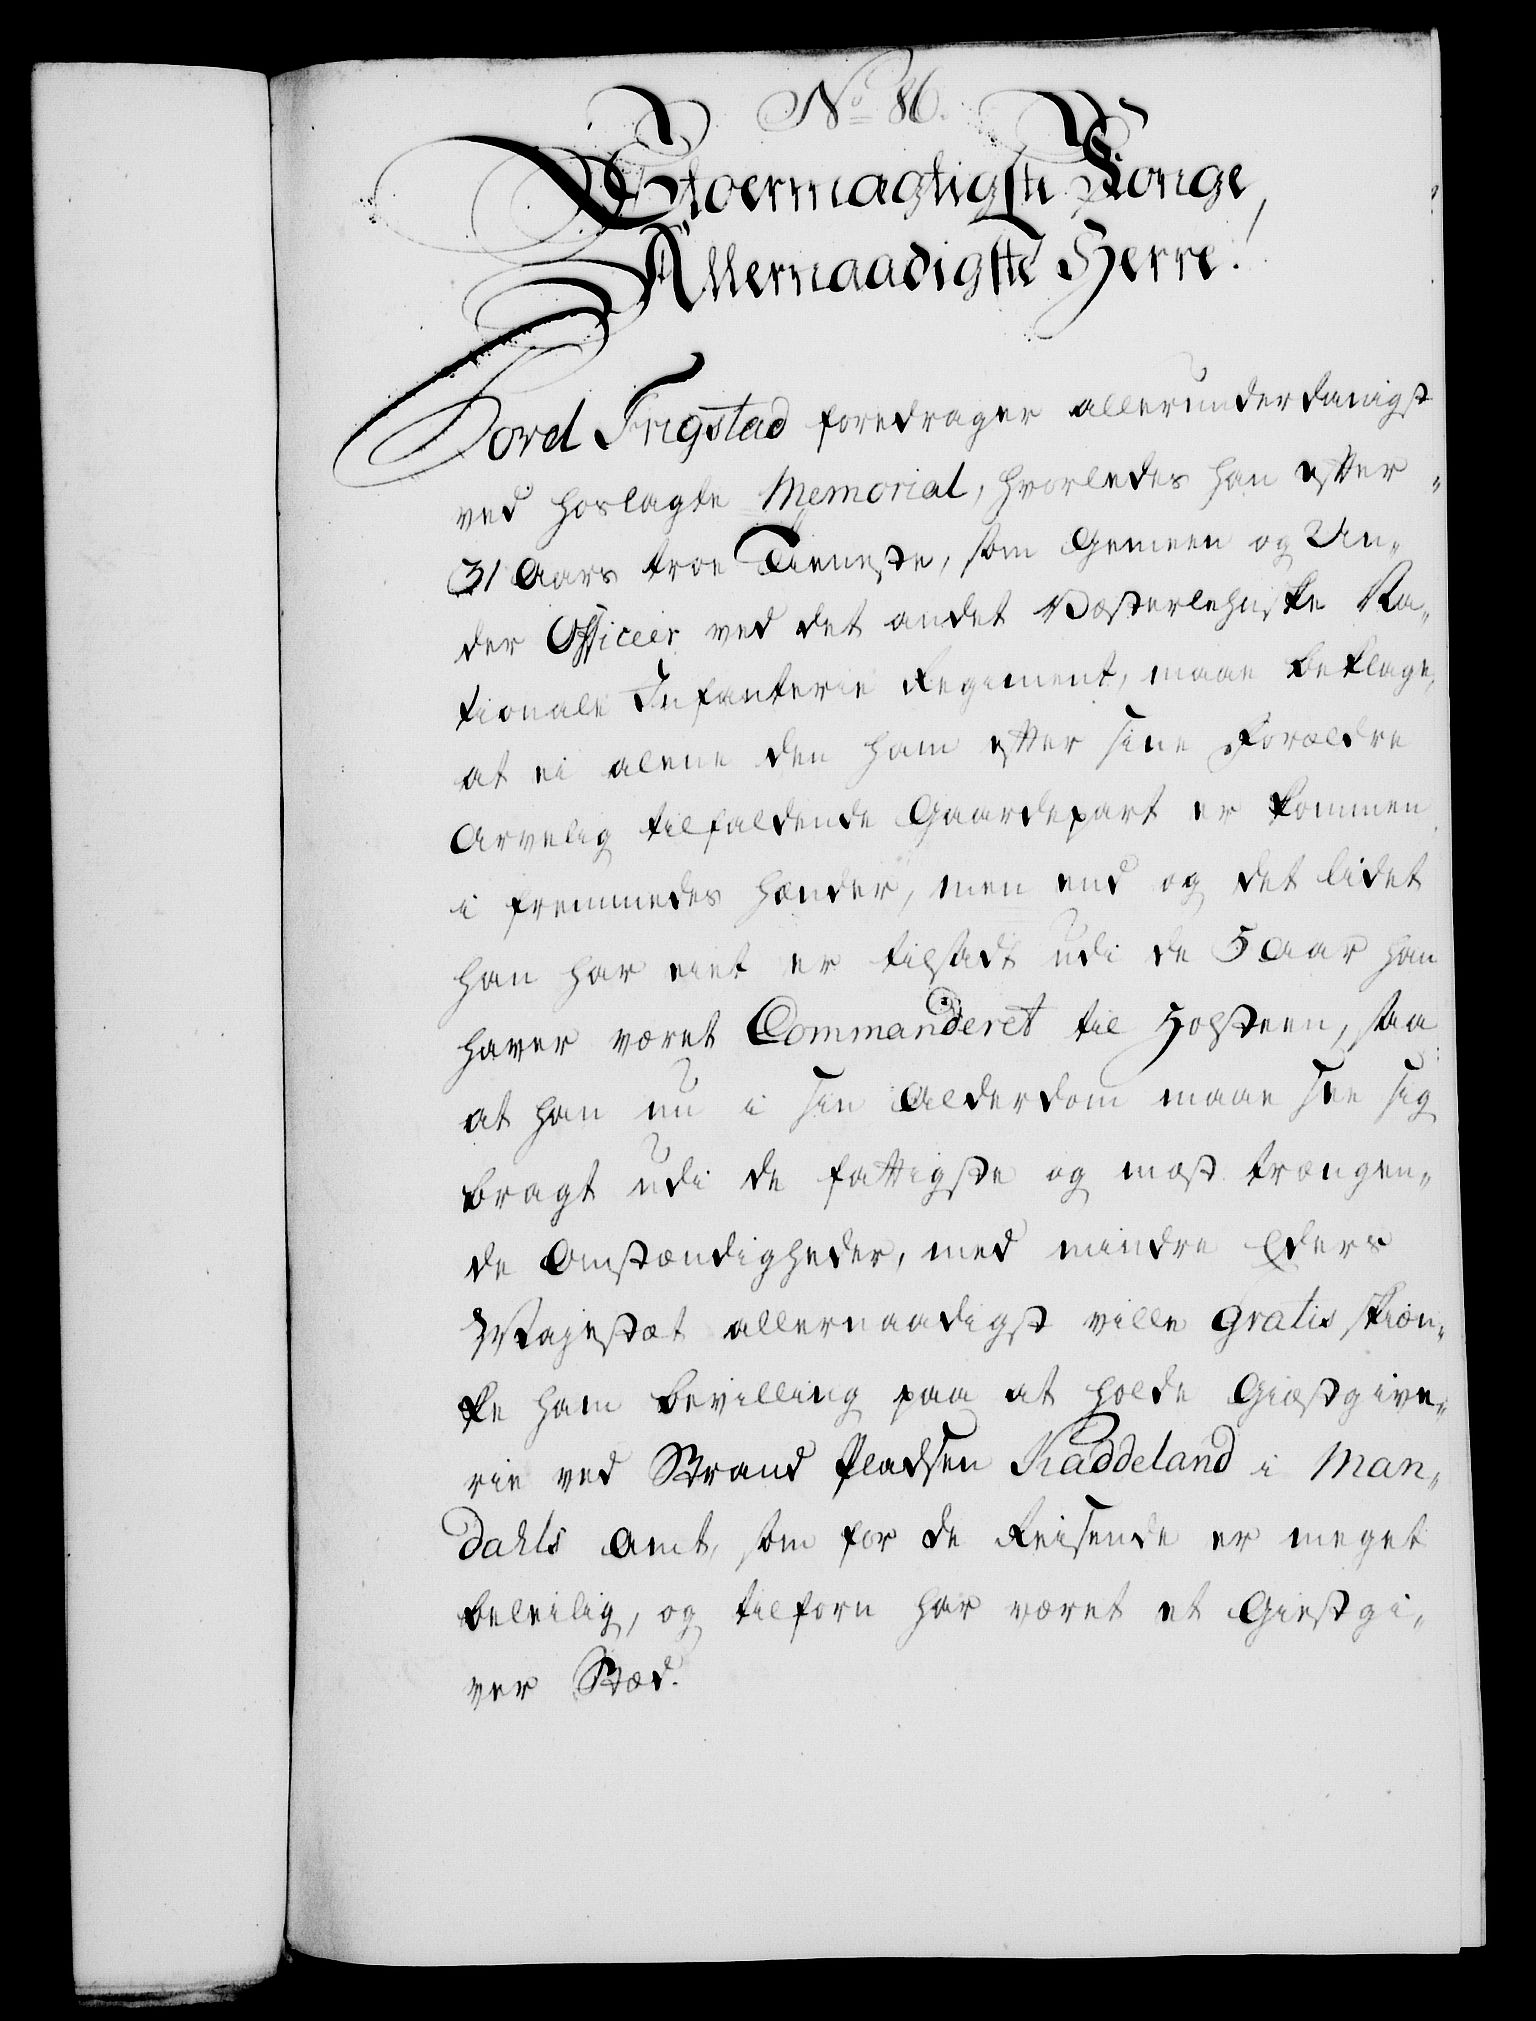 No 86.
Stoermagtigste Konge,
Allernaadigste Herre!
Tord Frigstad foredrager allerunderdanigst
ved hoslagte Memorial, hvorledes han efter
31 Aars troe Tieneste, som Gemeen og Un„
der Officeer ved det andet Vesterlehnske Na„
tionale Infanterie Regiment, maae beklage,
at ei alene den ham efter sine Forældre
Arvelig tilfaldende Gaardepart er kommen
i fremmedes hænder, men end og det lidet
han har eiet er tilsadt udi de 5 Aar han
haver været Commanderet til Holsteen, saa
at han nu i sin Alderdom maae see sig
bragt udi de fattigste og mest trængen„
de Omstændigheder, med mindre Eders
Majestæt allernaadigst ville gratis skiæn„
ke ham bevilling paa at holde Giæstgive„
rie ved Strand Pladsen Kaddeland i Man„
dahls Amt, som for de Reisende er meget
beleilig, og tilforn har været et Giestgi„
ver Stæd.